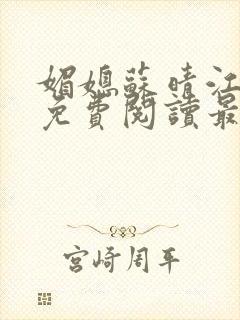 媚媳蘇晴江
免費閱讀最
宮崎周平